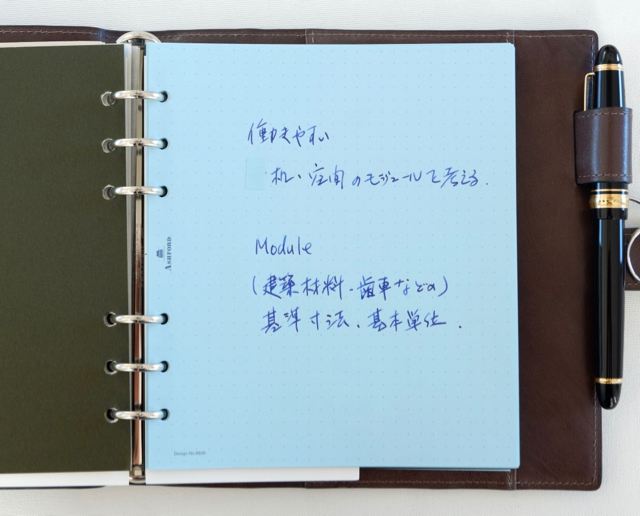 働きやすい
机・空間のモジュールで考える.
Module
(建築材料・歯車などの)
基準寸法、基本単位.
ASHFORD
Design No 6620